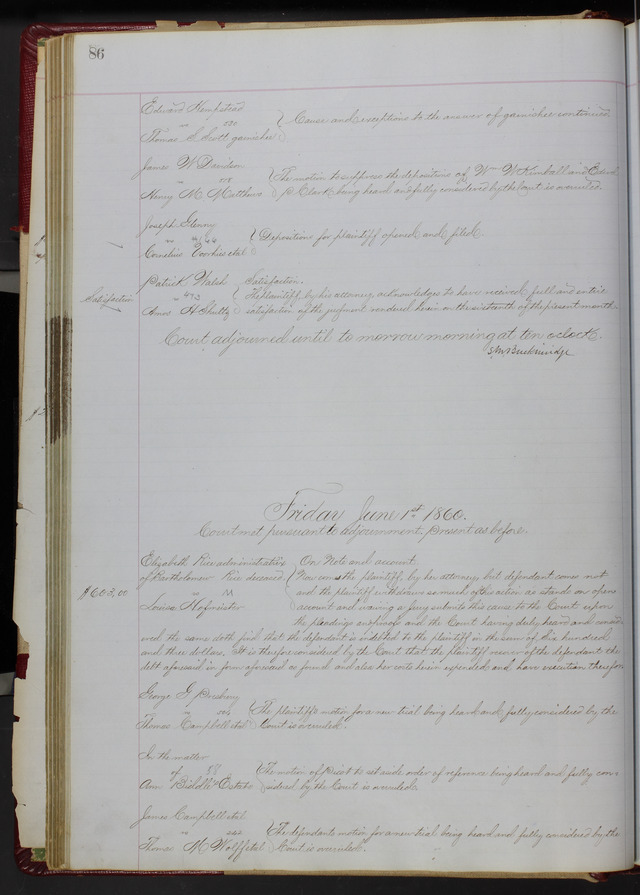 86
Edward Hempstead
" 220
Thomas S. Scott garnishee
Cause and exceptions to the answer of garnishee continued.
James W Davidson
" 278
Henry M. Matthews
The motion to suppress the depositions of Wm W Kimball and
Clark being heard and fully considered by the Court is overruled.
Joseph Glenny
"
Cornelius Voorhies et al
Depositions for plaintiff opened and filed.
Satisfaction
Patrick Walsh
" 473
Amos H Shultz
Satisfaction.
The plaintiff, by his attorney, acknowledges to have received, full and entire
satisfaction of the judgment rendered herein on the sixteenth of the present month.
Court adjourned until to morrow morning at ten o'clock.
S.M. Breckinridge
Friday June 1st 1860.
Court met, pursuant to adjournment, present as before.
$603.00
Elizabeth Rice administratrix
of Bartholomew Rice deceased
"
Louisa Hofmeister
On Note and account
Now comes the plaintiff, by her attorney, but defendant comes not
and the plaintiff withdraws so much of this action as stands on open
account and waiving a jury submits this cause to the Court upon
the pleadings and proofs and the Court having duly heard and consid
ered the same doth find that the defendant is indebted to the plaintiff in the sum of six hundred
and three dollars. It is therefore considered by the Court that the plaintiff recover of the defendant the
debt aforesaid in form aforesaid as found and also her costs herein expended and have execution therefor
George G. Presbury
" 504
Thomas Campbell et al
The plaintiff's motion for a new trial being heard and fully considered by the
Court is overruled.
In the matter
of 58
Ann Biddle's Estate
The motion of to set aside order of reference being heard and fully con
sidered by the Court is overruled.
James Campbell et al
" 242
Thomas M. Wolff et al
The defendants motion for a new trial being heard and fully considered by the
Court is overruled.